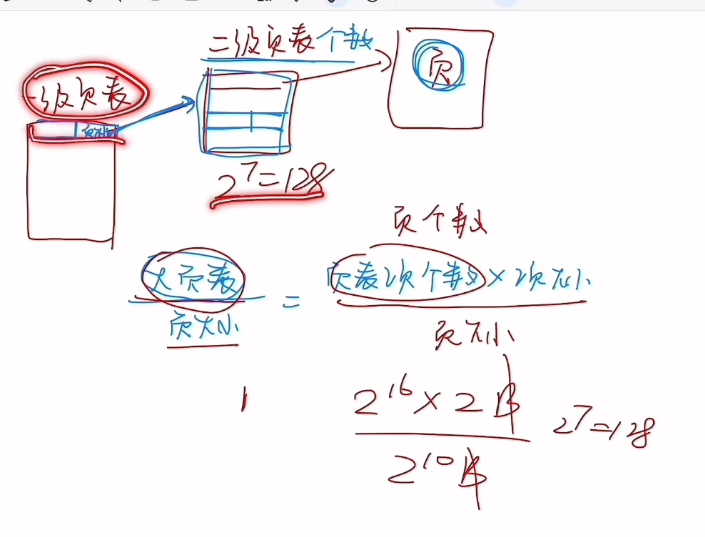 二级页表个数
页
一级页表
2^7=128
页个数
大页表 / 页大小 = 页表项个数×项大小 / 页大小
2^16×2B / 2^10B 2^7=128